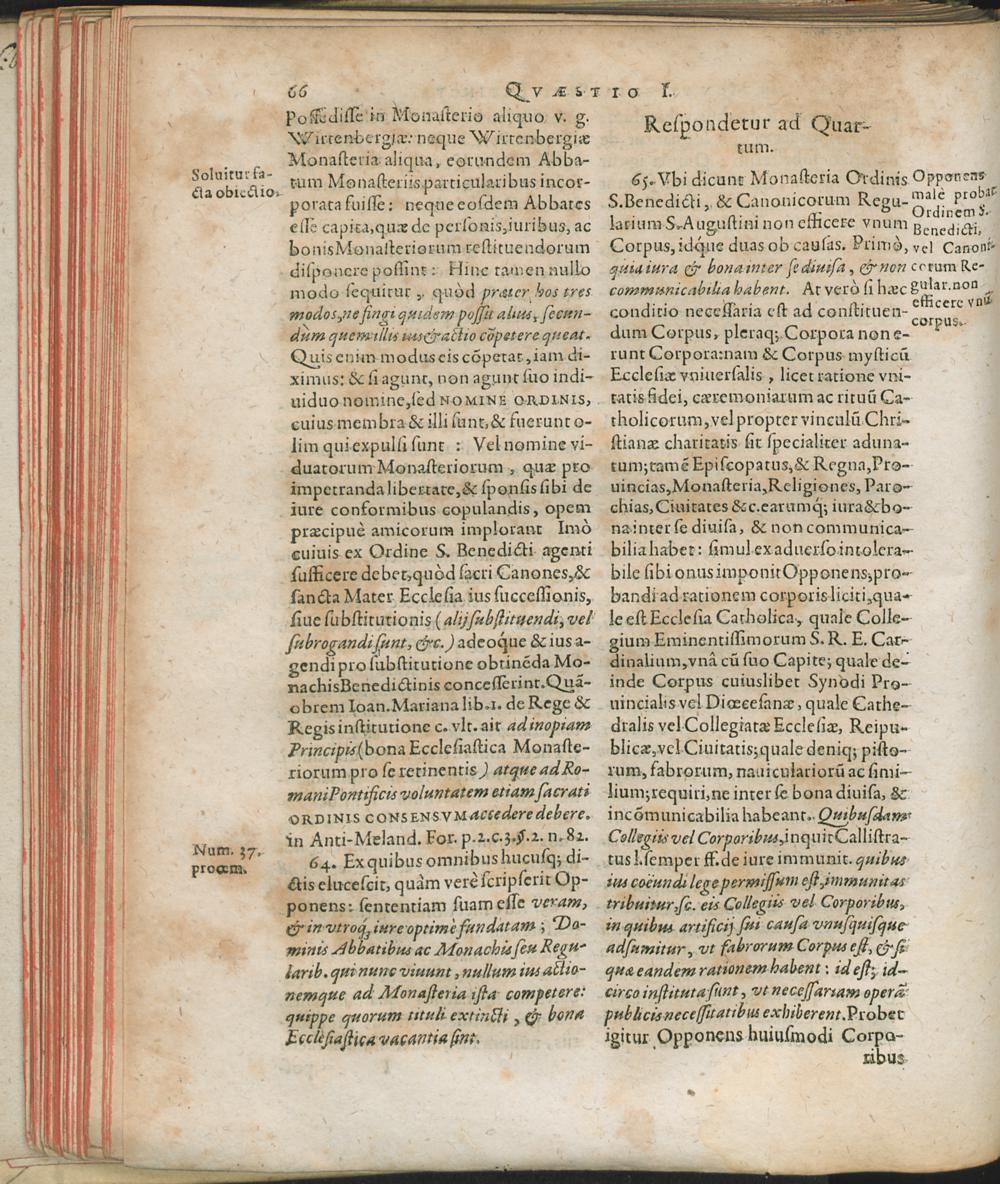 66
QVÆSTIO I.
Possedisse in Monasterio aliquo v. g.
Wirtenbergiæ: neque Wirtenbergiæ
Monasteria aliqua, eorundem Abba-
tum Monasteriis particularibus incor-
porata fuisse: neque eosdem Abbates
esse capita, quæ de personis, iuribus, ac
bonis Monasteriorum restituendorum
disponere possint: Hinc tamen nullo
modo sequitur, quòd præter hos tres
modos, ne fingi quidem possit alius, secun-
dùm quem illis ius & actio cōpetere queat.
Quis enim modus eis cōpetat, iam di-
ximus: & si agunt, non agunt suo indi-
uiduo nomine, sed NOMINE ORDINIS,
cuius membra & illi sunt, & fuerunt o-
lim qui expulsi sunt : Vel nomine vi-
duatorum Monasteriorum, quæ pro
impetranda libertate, & sponsis sibi de
iure conformibus copulandis, opem
præcipuè amicorum implorant Imò
cuiuis ex Ordine S. Benedicti agenti
sufficere debet, quòd sacri Canones, &
sancta Mater Ecclesia ius successionis,
siue substitutionis (alij substituendi, vel
subrogandi sunt, &c.) adeoq́ue & ius a-
gendi pro substitutione obtinēda Mo-
nachis Benedictinis concesserint. Quā-
obrem Ioan. Mariana lib. 1. de Rege &
Regis institutione c. vlt. ait ad inopiam
Principis (bona Ecclesiastica Monaste-
riorum pro se retinentis) atque ad Ro-
mani Pontificis voluntatem etiam sacrati
ORDINIS CONSENSVM accedere debere.
in Anti-Mæland. For. p. 2. c. 3. §. 2. n. 82.
64. Ex quibus omnibus hucusq; di-
ctis elucescit, quàm verè scripserit Op-
ponens: sententiam suam esse veram,
& in vtroq́, iure optimè fundatam; Do-
minis Abbatibus ac Monachis seu Regu-
larib. qui nunc viuunt, nullum ius actio-
nemque ad Monasteria ista competere:
quippe quorum tituli extincti, & bona
Ecclesiastica vacantia sint.
Soluitur fa-
cta obiectio.
Num. 37.
proœm.
Respondetur ad Quar-
tum.
65. Vbi dicunt Monasteria Ordinis
S. Benedicti, & Canonicorum Regu-
larium S. Augustini non efficere vnum
Corpus, idq́ue duas ob causas. Primò,
quia iura & bona inter se diuisa, & non
communicabilia habent. At verò si hæc
conditio necessaria est ad constituen-
dum Corpus, pleraq; Corpora non e-
runt Corpora: nam & Corpus mysticū
Ecclesiæ vniuersalis, licet ratione vni-
tatis fidei, cæremoniarum ac rituū Ca-
tholicorum, vel propter vinculū Chri-
stianæ charitatis sit specialiter aduna-
tum; tamē Episcopatus, & Regna, Pro-
uincias, Monasteria, Religiones, Paro-
chias, Ciuitates &c. earumq́; iura & bo-
na inter se diuisa, & non communica-
bilia habet: simul ex aduerso intolera-
bile sibi onus imponit Opponens, pro-
bandi ad rationem corporis liciti, qua-
le est Ecclesia Catholica, quale Colle-
gium Eminentissimorum S. R. E. Car-
dinalium, vnâ cū suo Capite; quale de-
inde Corpus cuiuslibet Synodi Pro-
uincialis vel Diœcesanæ, quale Cathe-
dralis vel Collegiatæ Ecclesiæ, Reipu-
blicæ, vel Ciuitatis; quale deniq; pisto-
rum, fabrorum, nauiculariorū ac simi-
lium; requiri, ne inter se bona diuisa, &
incōmunicabilia habeant. Quibusdam
Collegiis vel Corporibus, inquit Callistra-
tus l. semper ff. de iure immunit. quibus
ius coëundi lege permissum est, immunitas
tribuitur, sc. eis Collegiis vel Corporibus,
in quibus artificij sui causa vnusquisque
adsumitur, vt fabrorum Corpus est, & si
qua eandem rationem habent: id est, id-
circo instituta sunt, vt necessariam operā
publicis necessitatibus exhiberent. Probet
igitur Opponens huiusmodi Corpo-
ribus
Opponens
malè probat
Ordinem S.
Benedicti,
vel Canoni-
corum Re-
gular. non
efficere vnū
corpus.